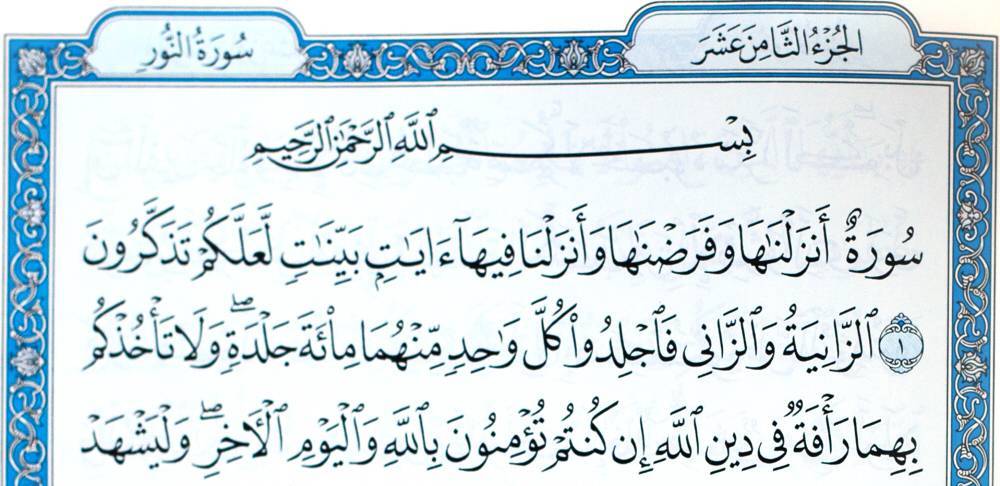 الجُزْءُ الثَّامِنَ عَشَرَ
سُورَةُ النُّورِ
بِسْمِ ٱللَّهِ ٱلرَّحْمَٰنِ ٱلرَّحِيمِ
سُورَةٌ أَنزَلْنَٰهَا وَفَرَضْنَٰهَا وَأَنزَلْنَا فِيهَآ ءَايَٰتٍۭ بَيِّنَٰتٍ لَّعَلَّكُمْ تَذَكَّرُونَ
١ ٱلزَّانِيَةُ وَٱلزَّانِى فَٱجْلِدُوا۟ كُلَّ وَٰحِدٍ مِّنْهُمَا مِا۟ئَةَ جَلْدَةٍۖ وَلَا تَأْخُذْكُم
بِهِمَا رَأْفَةٌ فِى دِينِ ٱللَّهِ إِن كُنتُمْ تُؤْمِنُونَ بِٱللَّهِ وَٱلْيَوْمِ ٱلْأَخِرِۖ وَلْيَشْهَدْ